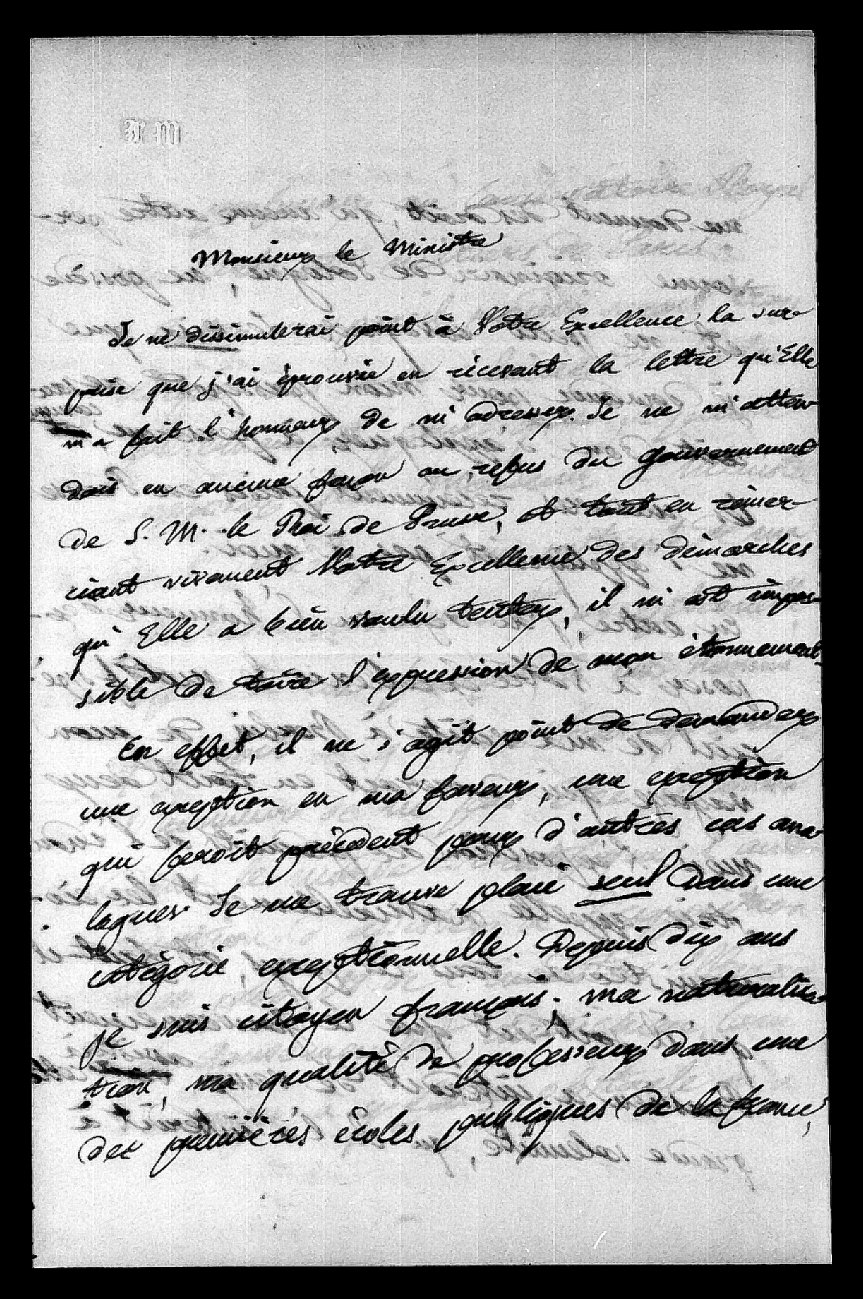 Monsieur le Ministre
Je ne dissimulerai point à Votre Excellence la sur-
prise que j'ai éprouvée en recevant la lettre qu'Elle
m'a fait l'honneur de m'adresser. Je ne m'atten-
dais en aucune façon au refus du gouvernement
de S. M. le Roi de Prusse, et tout en remer-
ciant vivement Votre Excellence des démarches
qu'Elle a bien voulu tenter, il m'est impos-
sible de taire l'expression de mon étonnement.
En effet, il ne s'agit point de demander
une exception en ma faveur, une exception
qui feroit précédent pour d'autres cas ana-
logues. Je me trouve placé seul dans une
catégorie exceptionnelle. Depuis dix ans
je suis citoyen français. Ma naturalisa-
tion, ma qualité de professeur dans une
des premières écoles publiques de la france,